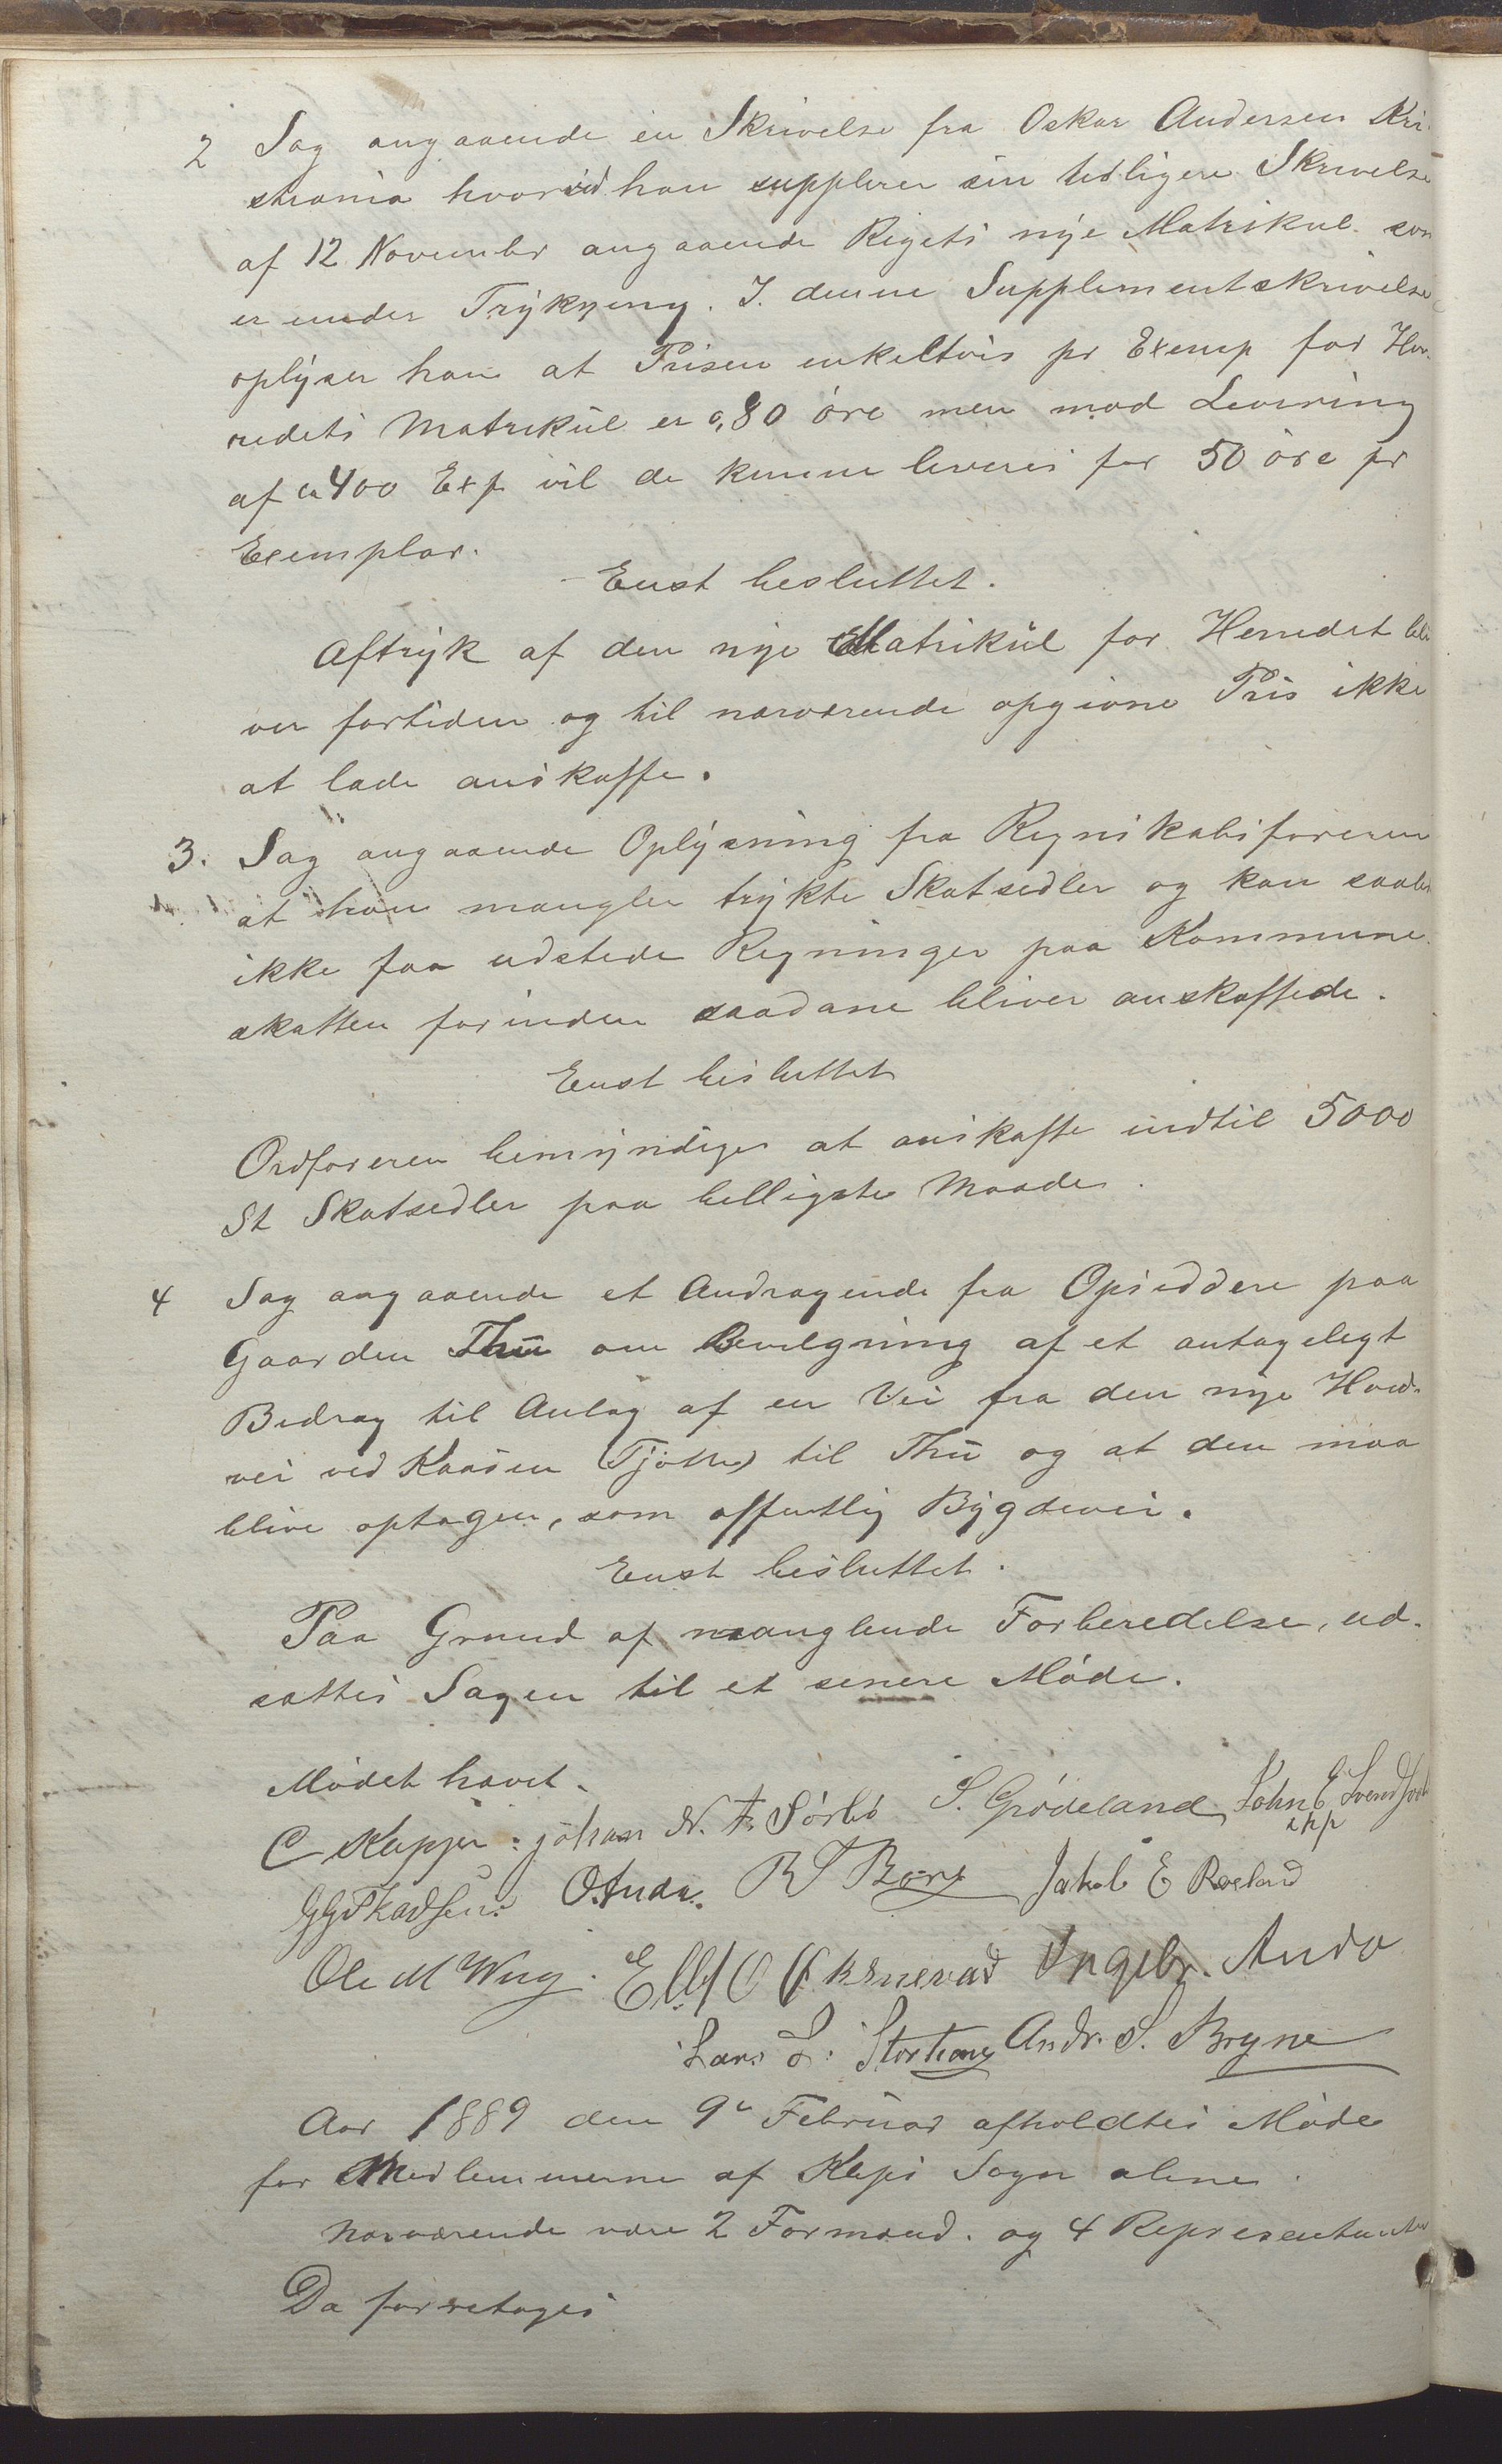 2 Sag angaaende en Skrivelse fra Oskar Andersen Kri-
stiania hvorved han supplerer sin tidligere Skrivelse
af 12 November angaaende Rigets nye Matrikul som
er under Trykning. I denne Supplementskrivelse
oplyser han at Prisen enkeltvis pr Exemp for Her-
redets Matrikul er 0,80 øre men mod Levering
af ca 400 Exp vil de kunne leveres for 50 øre pr
Exemplar.
Enst besluttet.
Aftryk af den nye Matrikul for Herredet bli
ver fortiden og til nærværende opgivne Pris ikke
at lade anskaffe.
3. Sag angaaende Oplysning fra Regnskabsføreren
at han mangler trykte Skatsedler og kan saaled
ikke faa udstede Regninger paa Kommune-
skatten forinden saadane bliver anskaffede.
Enst besluttet
Ordføreren bemyndiges at anskaffe indtil 5000
St Skatsedler paa billigste Maade.
4 Sag angaaende et Andragende fra Opsiddere paa
Gaarden Thu om Bevilgning af et antageligt
Bidrag til Anlæg af en Vei fra den nye Hoved-
vei ved Kaasen (Tjøtta) til Thu og at den maa
blive optagen, som offentlig Bygdevei.
Enst besluttet.
Paa Grund af manglende Forberedelse, ud-
sattes Sagen til et senere Møde.
Mødet hævet.
C Kupper: Johan N. T. Sørbø S. Grødeland John E Svendsen
O. Anda. R T Bore Jakob E Roeland
Ole M Wiig. Ellef O Øksnevad Ingebr. Anda
Lars L. Stortong Andr. S. Bryne
Aar 1889 den 9de Februar afholdtes Møde
for Medlemmerne af Kleps Sogn alene.
Nærværende vare 2 Formænd. og 4 Representanter
Da foretages